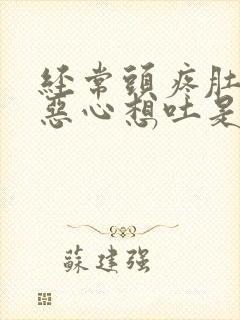 經常頭疼肚
惡心想吐是
蘇建强